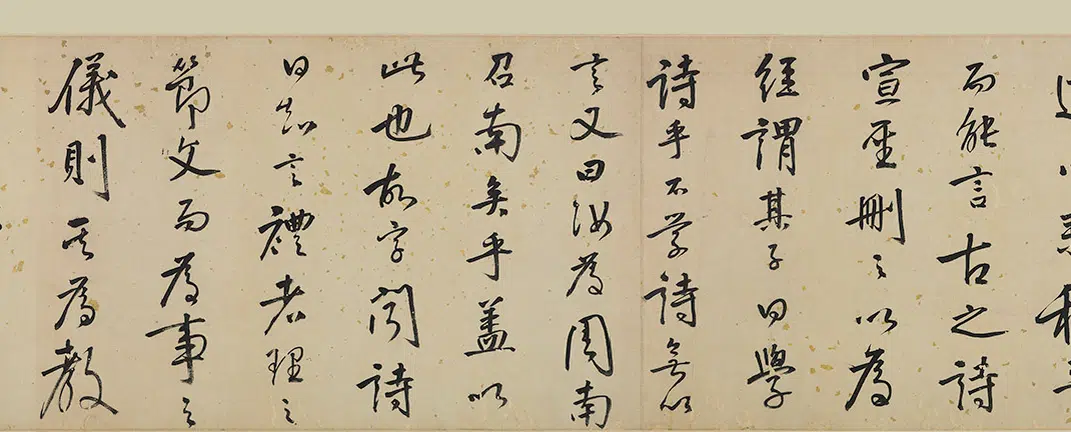 而能言古之詩
宣聖刪之以為
經謂其子曰學
詩乎不學詩無以
言又曰汝為周南
召南矣乎蓋以
此也故字聞詩
曰知言禮者理之
節文而為事之
儀則其為教